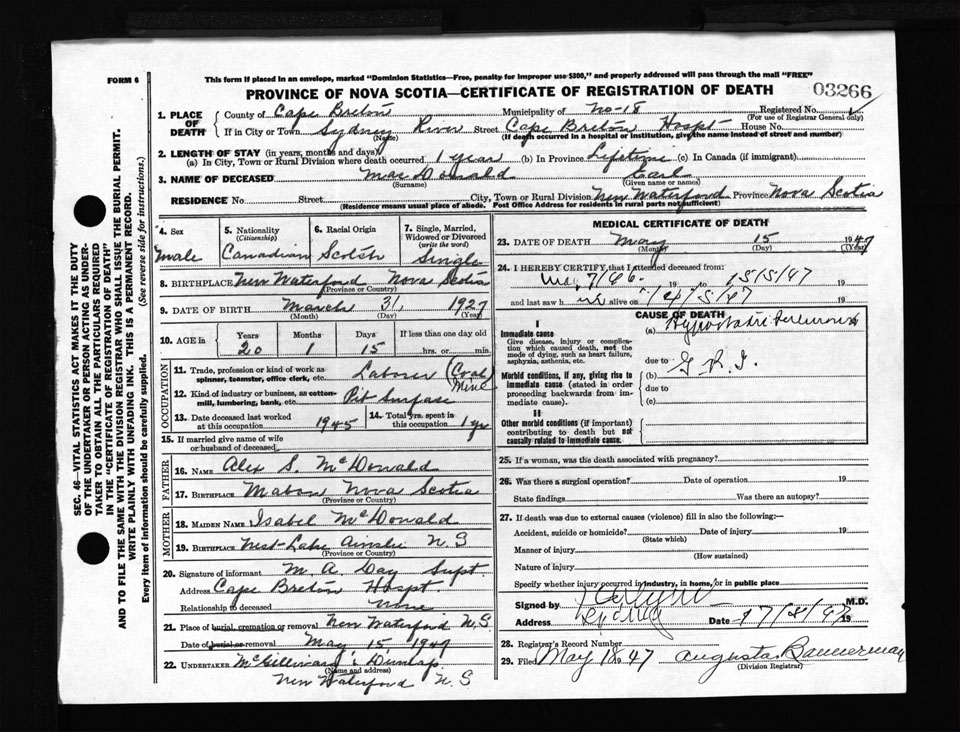 FORM 6
This form if placed in an envelope, marked "Dominion Statistics—Free, penalty for improper use $300," and properly addressed will pass through the mail "FREE"
PROVINCE OF NOVA SCOTIA—CERTIFICATE OF REGISTRATION OF DEATH
03266
SEC. 46—VITAL STATISTICS ACT MAKES IT THE DUTY
OF THE UNDERTAKER OR PERSON ACTING AS UNDER-
TAKER TO OBTAIN ALL THE PARTICULARS REQUIRED
IN THE "CERTIFICATE OF REGISTRATION OF DEATH"
AND TO FILE THE SAME WITH THE DIVISION REGISTRAR WHO SHALL ISSUE THE BURIAL PERMIT.
WRITE PLAINLY WITH UNFADING INK. THIS IS A PERMANENT RECORD.
Every item of information should be carefully supplied. (See reverse side for instructions.)
1. PLACE OF DEATH
County of Cape Breton Municipality of No-18 Registered No.
(For use of Registrar General only)
If in City or Town Sydney River Street Cape Breton Hospt House No.
(Name) (If death occurred in a hospital or institution, give the name instead of street and number)
2. LENGTH OF STAY (in years, months and days)
(a) In City, Town or Rural Division where death occurred 1 year (b) In Province Lifetime (c) In Canada (if immigrant)
3. NAME OF DECEASED Mac Donald Earl
(Surname) (Given name or names)
RESIDENCE No. Street City, Town or Rural Division New Waterford Province Nova Scotia
(Residence means usual place of abode. Post Office Address for residents in rural parts not sufficient)
4. Sex
Male
5. Nationality
(Citizenship)
Canadian
6. Racial Origin
Scotch
7. Single, Married,
Widowed or Divorced
(write the word)
Single
8. BIRTHPLACE New Waterford Nova Scotia
(Province or Country)
9. DATE OF BIRTH March 31 1927
(Month) (Day) (Year)
10. AGE in
Years Months Days If less than one day old
20 1 15 hrs. or min.
OCCUPATION
11. Trade, profession or kind of work as
spinner, teamster, office clerk, etc. Laborer (Coal
Mine
12. Kind of industry or business, as cotton-
mill, lumbering, bank, etc. Pit Surface
13. Date deceased last worked
at this occupation 1945
14. Total yrs. spent in
this occupation 1 yr
15. If married give name of wife
or husband of deceased
FATHER
16. NAME Alex S. McDonald
17. BIRTHPLACE Mabou Nova Scotia
(Province or Country)
MOTHER
18. MAIDEN NAME Isabel McDonald
19. BIRTHPLACE West Lake Ainslie N.S
(Province or Country)
20. Signature of informant M. A. Day Supt.
Address Cape Breton Hospt.
Relationship to deceased None
21. Place of burial, cremation or removal New Waterford N.S.
Date of burial or removal May 15 1947
22. UNDERTAKER McGillivary & Dunlap
(Name and address)
New Waterford N.S
MEDICAL CERTIFICATE OF DEATH
23. DATE OF DEATH May 15 1947
(Month) (Day) (Year)
24. I HEREBY CERTIFY, that I attended deceased from:
19 to 15/5/47 19
and last saw h alive on 14/5/47 19
CAUSE OF DEATH
I
Immediate cause
Give disease, injury or complica-
tion which caused death, not the
mode of dying, such as heart failure,
asphyxia, asthenia, etc.
(a)
due to
Morbid conditions, if any, giving rise to
immediate cause (stated in order
proceeding backwards from im-
mediate cause).
(b) G. P. I.
due to
(c)
II
Other morbid conditions (if important)
contributing to death but not
causally related to immediate cause.
25. If a woman, was the death associated with pregnancy?
26. Was there a surgical operation? Date of operation 19
State findings Was there an autopsy?
27. If death was due to external causes (violence) fill in also the following:—
Accident, suicide or homicide? Date of injury 19
(State which)
Manner of injury
(How sustained)
Nature of injury
Specify whether injury occurred in industry, in home, or in public place
Signed by M.D.
Address Sydney Date 17/5/47 19
28. Registrar's Record Number
29. Filed May 18 47 Augusta Bannerman
(Division Registrar)